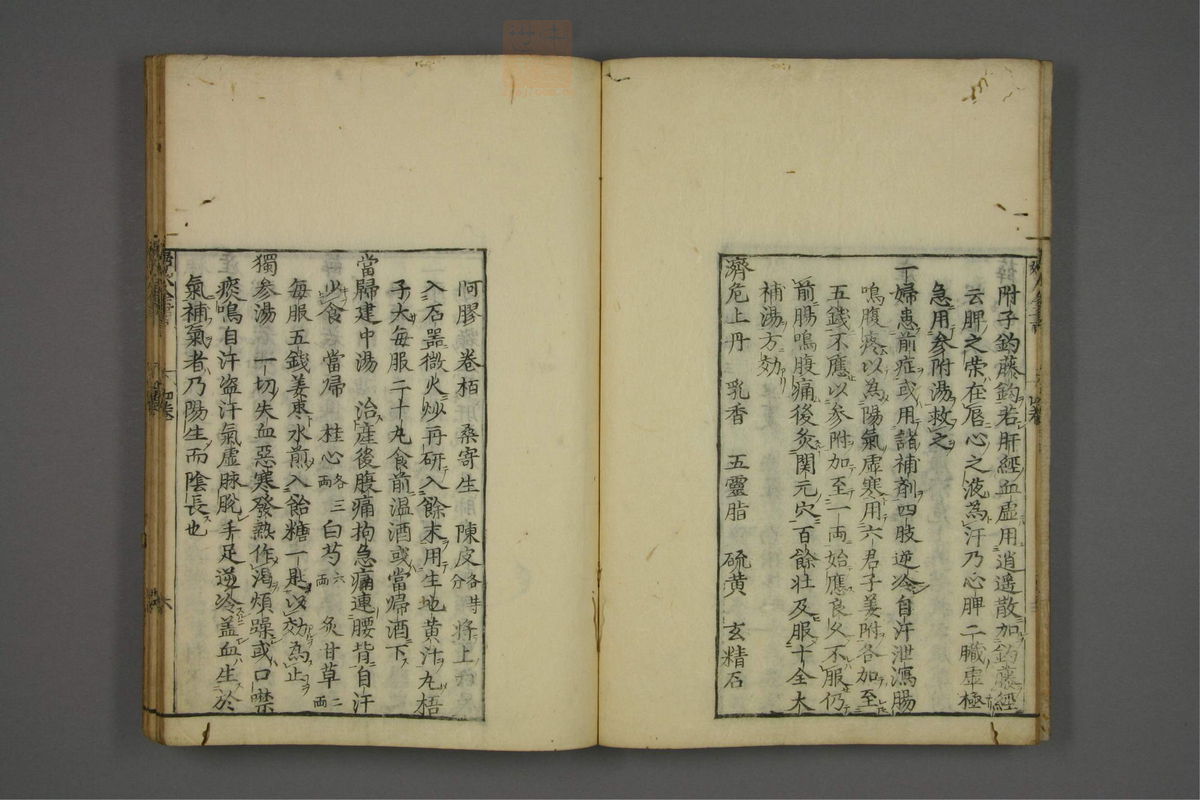 附子釣藤釣若肝經血虛用逍遙散加釣藤經
云脾之荣在唇心之液為汗乃心脾二臟虛極
急用參附湯救之
一婦患前症或用諸補剤四肢逆冷自汗泄瀉腸
鳴腹疼以為陽氣虛寒用六君子姜附各加至
五錢不應以参附加至一両始應良久不服仍
前腸鳴腹痛後灸関元穴百餘壮及服十全大
補湯方効
濟危上丹 乳香 五靈脂 硫黄 玄精石
阿膠 卷栢 桑寄生 陳皮各等分 將上
入石器微火炒再研入餘末用生地黄汁丸梧
子大每服二十丸食前温酒或當帰酒下
當歸建中湯 治産後腹痛拘急痛連腰背自汗
少食 當帰 桂心各三両 白芍六両 炙甘草二両
每服五錢姜棗水煎入飴糖一匙以効為止
獨参湯 一切失血惡寒發熱作渴煩躁或口噤
痰鳴自汗盗汗氣虛脉脫手足逆冷盖血生於
氣補氣者乃陽生而陰長也